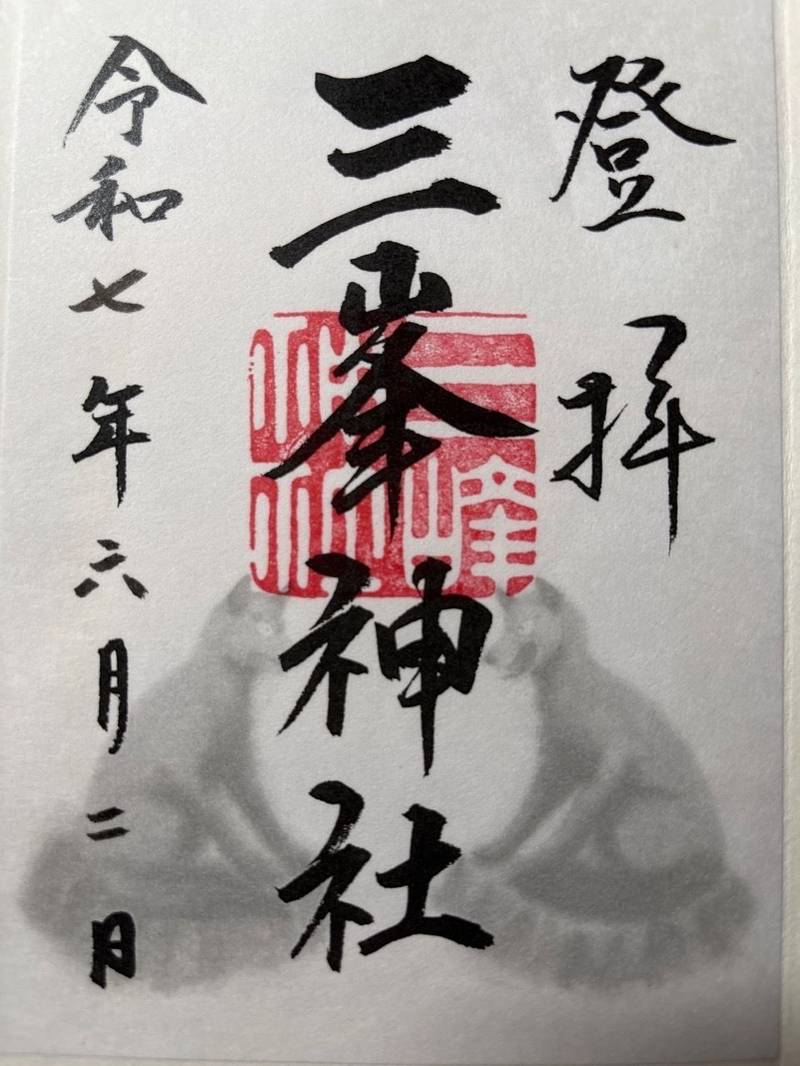 登拝
三峯神社
令和七年六月二日